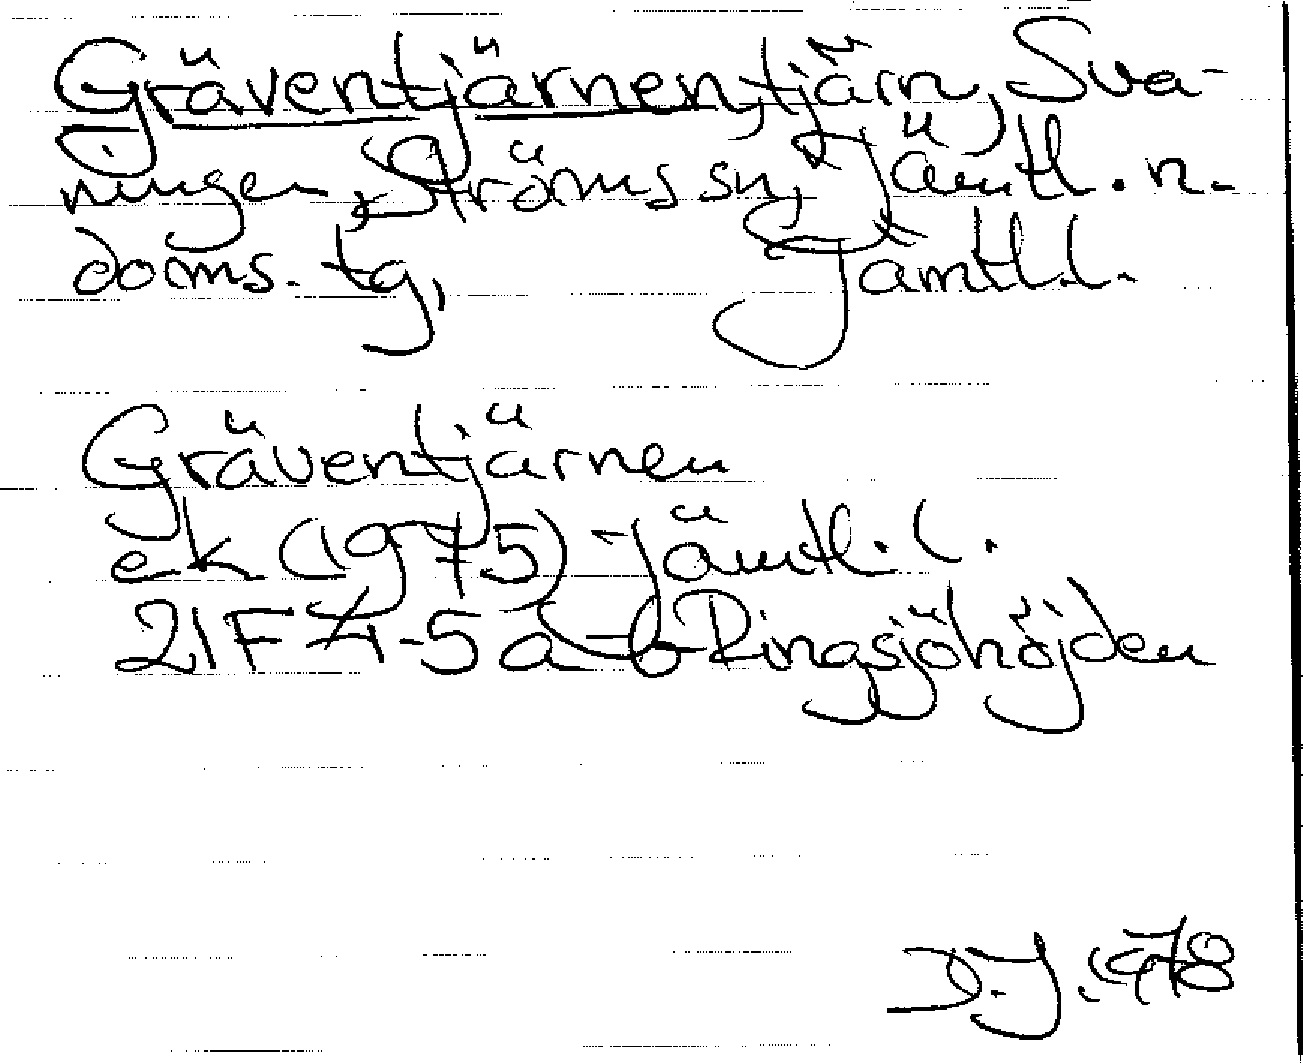 Gräventjärnen, tjärn, Sva-
ningen, Ströms sn, Jämtl. n.
doms. tg, Jämtl.l.
Gräventjärnen
ek (1975) Jämtl. l.
21F 4-5 a-b Ringsjöhöjden
D.J. 1978